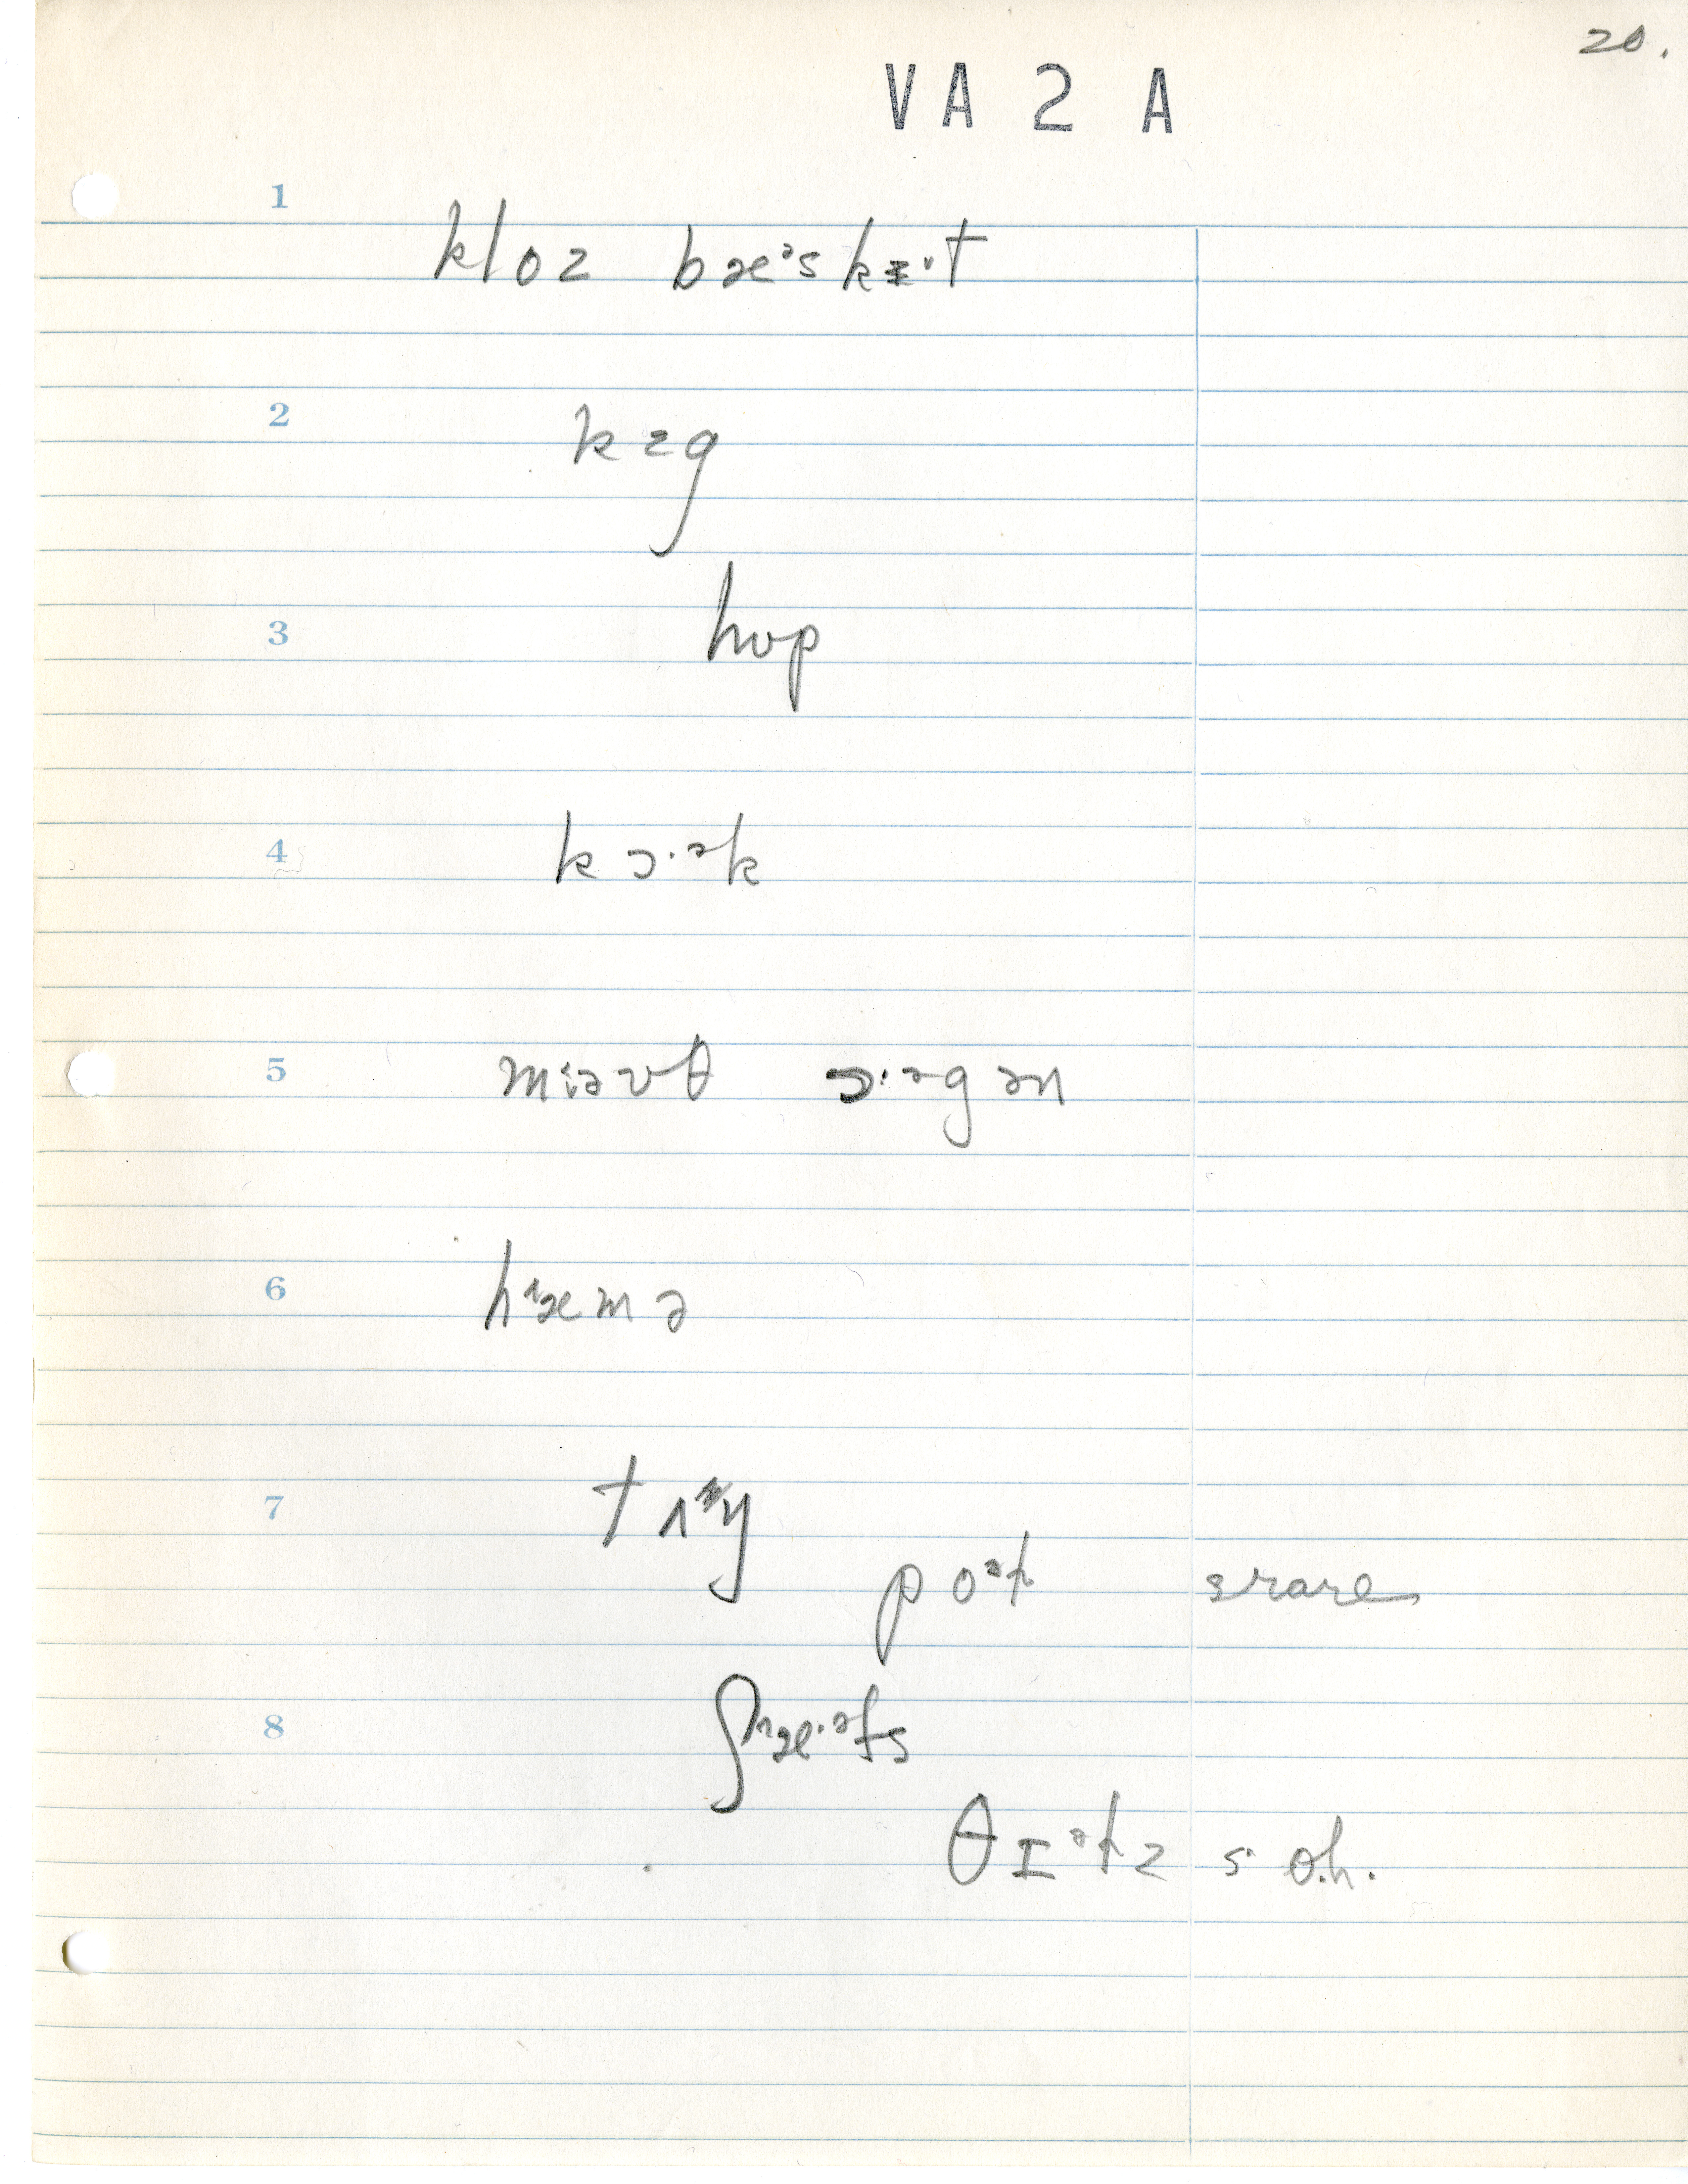 20.
VA 2 A
1 kloz bæᵊskɪ·t
2 kɛg
3 hʊp
4 kɔ·ᵊk
5 mɪəʊθ ɔ·ᵊgən
6 hᴧæmə
7 tᴧŋ
poᵊɫ srare
8 ʃᴧæ·ᵊfs
θɪᵊɫz s· o.h.